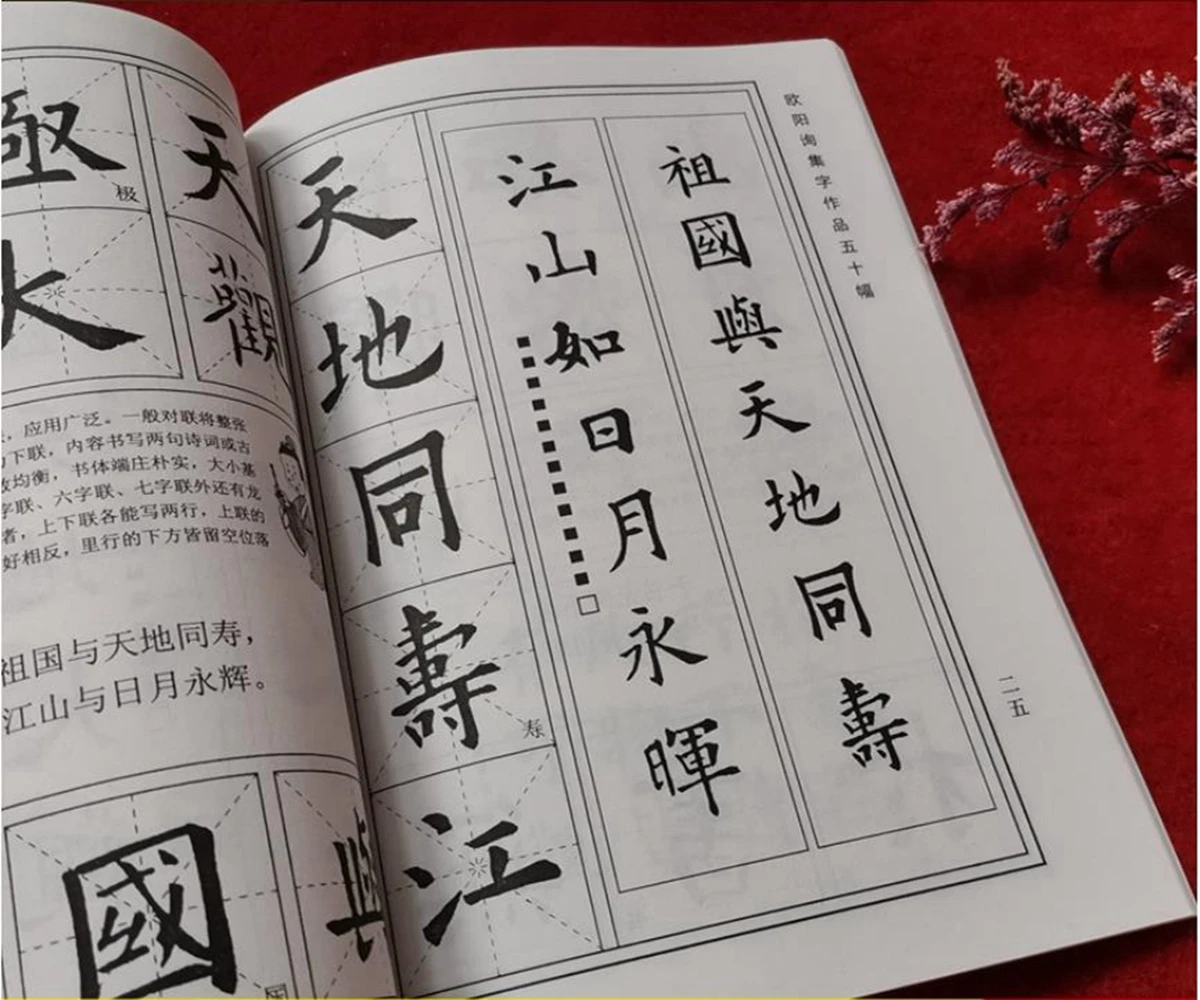 極 天
极
觀
，应用广泛。一般对联将整张
下联，内容书写两句诗词或古
均衡，书体端庄朴实，大小基
字联、六字联、七字联外还有龙
者，上下联各能写两行，上联的
好相反，里行的下方皆留空位落
祖国与天地同寿，
江山与日月永辉。
國 與
国
天地同壽江
寿
祖國與天地同壽
江山如日月永暉
欧阳询集字作品五十幅
二五